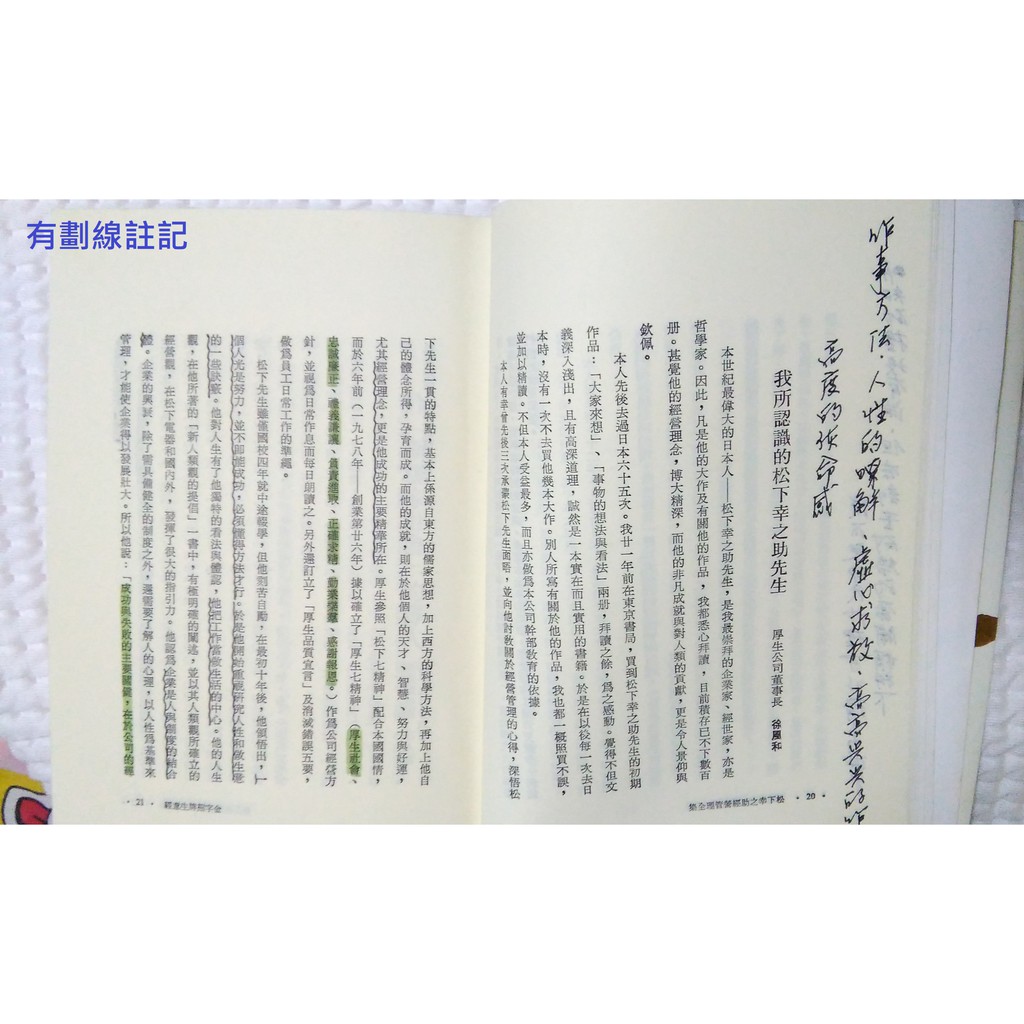 有劃線註記
作事方法、人性的瞭解、虛心求教、高高興興的作
高度的使命感
我所認識的松下幸之助先生
厚生公司董事長 徐風和
本世紀最偉大的日本人——松下幸之助先生，是我最崇拜的企業家、經世家，亦是
哲學家。因此，凡是他的大作及有關他的作品，我都悉心拜讀，目前積存已不下數百
册。甚覺他的經營理念，博大精深，而他的非凡成就與對人類的貢獻，更是令人景仰與
欽佩。
本人先後去過日本六十五次。我廿一年前在東京書局，買到松下幸之助的初期
作品：「大家來想」、「事物的想法與看法」兩册，拜讀之餘，爲之感動。覺得不但文
義深入淺出，且有高深道理，誠然是一本實在而且實用的書籍。於是在以後每一次去日
本時，沒有一次不去買他幾本大作。別人所寫有關於他的作品，我也都一概照買不誤，
並加以精讀。不但本人受益最多，而且亦做爲本公司幹部敎育的依據。
本人有幸曾先後三次承蒙松下先生面晤，並向他討敎關於經營管理的心得，深悟松
松下幸之助經營管理全集 • 20 •
下先生一貫的特點，基本上係源自東方的儒家思想，加上西方的科學方法，再加上他自
己的體念所得，孕育而成。而他的成就，則在於他個人的天才、智慧、努力與好運，
尤其經營理念，更是他成功的主要精華所在。厚生參照「松下七精神」配合本國國情，
而於六年前（一九七八年——創業第廿六年）據以確立了「厚生七精神」（厚生社會、
忠誠廉正、禮義謙讓、負責進取、正確求精、勤業樂羣、感謝報恩。）作爲公司經營方
針，並視爲日常作息而每日朗讀之。另外還訂立了「厚生品質宣言」及消滅錯誤五要，
做爲員工日常工作的準繩。
松下先生雖僅國校四年就中途輟學，但他刻苦自勵，在最初十年後，他領悟出，一
個人光是努力，並不卽能成功，必須懂得方法才行。於是他開始重視研究人性和做生意
的一些訣竅。他對人生有了他獨特的看法與體認，他把工作當做生活的中心。他的人生
觀，在他所著的「新人類觀的提倡」一書中，有極明確的闡述，並以其人類觀所確立的
經營觀，在松下電器和國內外，發揮了很大的指引力。他認爲企業是人與制度的結合
體。企業的興衰，除了需具備健全的制度之外，還需要了解人的心理，以人性爲基準來
管理，才能使企業得以發展壯大。所以他說：「成功與失敗的主要關鍵，在於公司的經
• 21 •